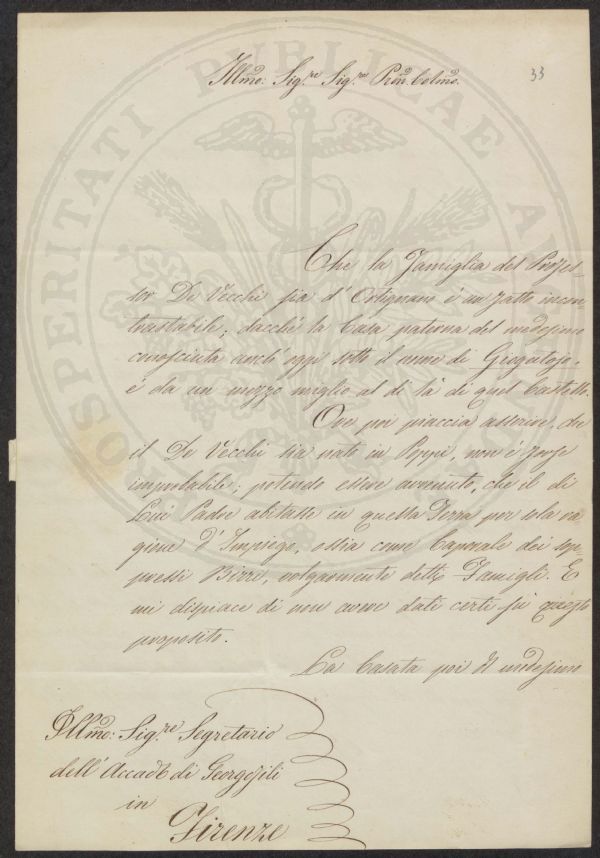 33
Illmo: Sig.re Sig.re Pron. Colmo.
Che la Famiglia del Profes-
sor De Vecchi sia d'Ortignano è un fatto incon-
trastabile; dacchè la Casa paterna del medesimo
conosciuta anch'oggi sotto il nome di
è da un mezzo miglio al di là di quel Castello.
Ove poi piaccia asserire, che
il De Vecchi sia nato in Poppi, non è forse
improbabile; potendo essere avvenuto, che il di
Lui Padre abitasse in questa Terra per sola ra-
gione d'Impiego, ossia come Caporale dei sop-
pressi Birri, volgarmente detto Famigli. E
mi dispiace di non avere dati certi su questo
proposito.
La Casata poi del medesimo
Illmo: Sig.re Segretario
dell'Accad. di Georgofili
in
Firenze
PROSPERITATI PUBLICAE AUGENDAE